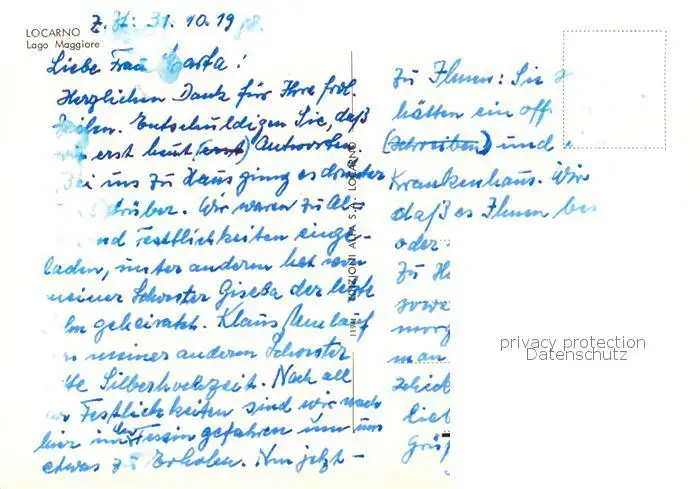 LOCARNO
Lago Maggiore
Z. Zt: 31. 10. 19
Liebe Frau
Herzlichen Dank für Ihre frdl.
Zeilen. Entschuldigen Sie, daß
wir erst heut (erst) Antworten
Bei uns zu Haus ging es drunter
drüber. Wir waren zu
nd Festlichkeiten einge-
laden, unter anderem hat von
meiner Schwester Gisela der
geheiratet. Klaus
meiner anderen Schwester
Silberhochzeit. Nach all
Festlichkeiten sind wir nach
hier in den Tessin gefahren um uns
etwas zu Erholen. Nun jetzt -
EDIZIONI ALFA S.A. - LOCARNO
Zu Ihnen: Sie
hätten ein off
(Schreiben) und
Krankenhaus. Wir
daß es Ihnen bes
oder
Zu H
sowe
morg
man
schick
Lieb
Grüß
privacy protection
Datenschutz